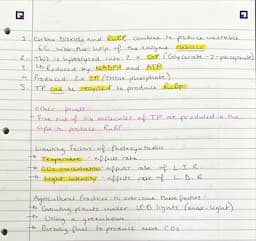 1. Carbon Dioxide and RuBP combine to produce unstable
6C with the help of the enzyme rubisco
2. This is hydrolysed into 2 x GP (Glycerate-3-phosphate)
3. ↳ Reduced by NADPH and ATP
4. Produced 2x TP (Triose phosphate)
5. TP can be recycled to produce RuBP
Other points
- Five out of six molecules of TP are produced in the
cycle to produce RuBP
Limiting Factors of Photosynthesis
→ Temperature - affects rate
→ CO2 concentration affect rate of L.I.R
→ Light intensity - affects rate of L.D.R
Agricultural Practices to overcome these factors
→ Growing plants under LED lights (max light)
→ Using a greenhouse
→ Burning fuel to produce more CO2